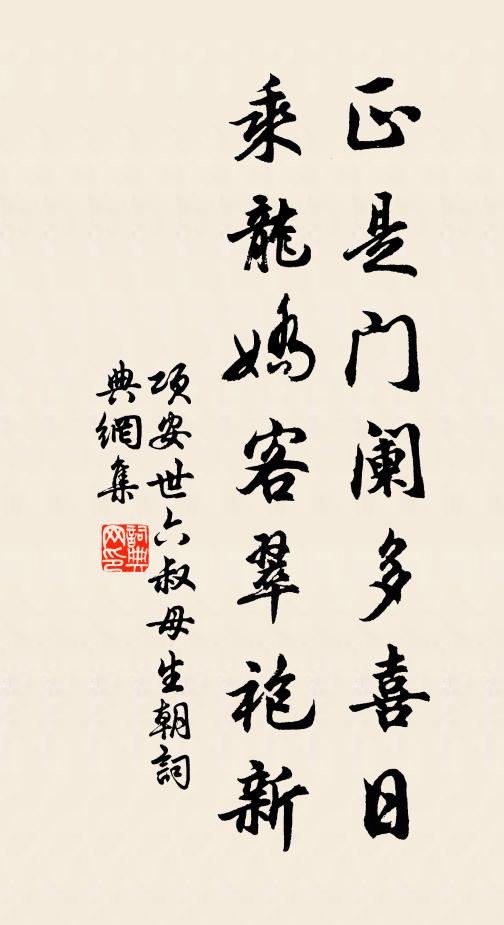 正是门阑多喜日
乘龍嬌客翠袍新
項安世六叔母生朝詞
典網集
詞典
网印